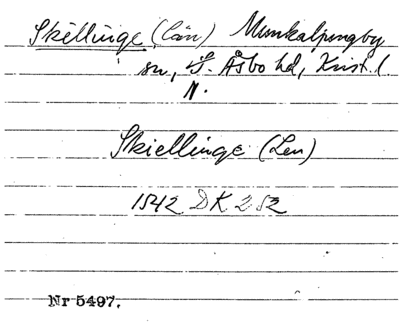 Skellinge (län) Munkaljungby
sn, S. Åsbo hd, Krist. l.
N.
Skiellinge (Len)
1542 DK 252
Nr 5497.